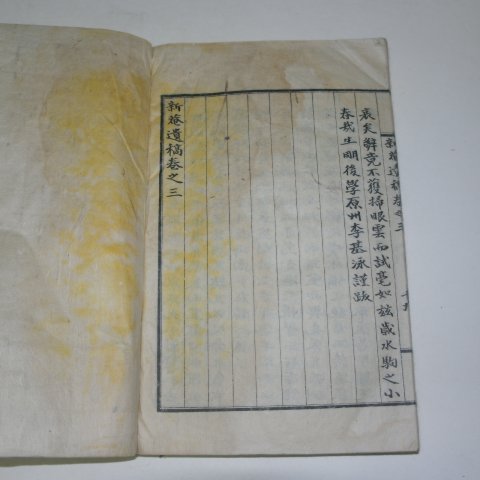 新菴遺稿卷之三
衰矣辭竟不獲掃眼雲而試毫如玆歲水駒之小
春哉生明後學原州李基泳謹跋
新菴遺稿卷之三